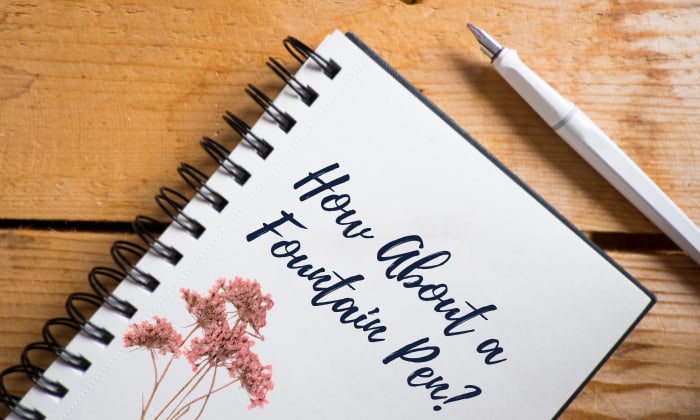 How About a
Fountain Pen?